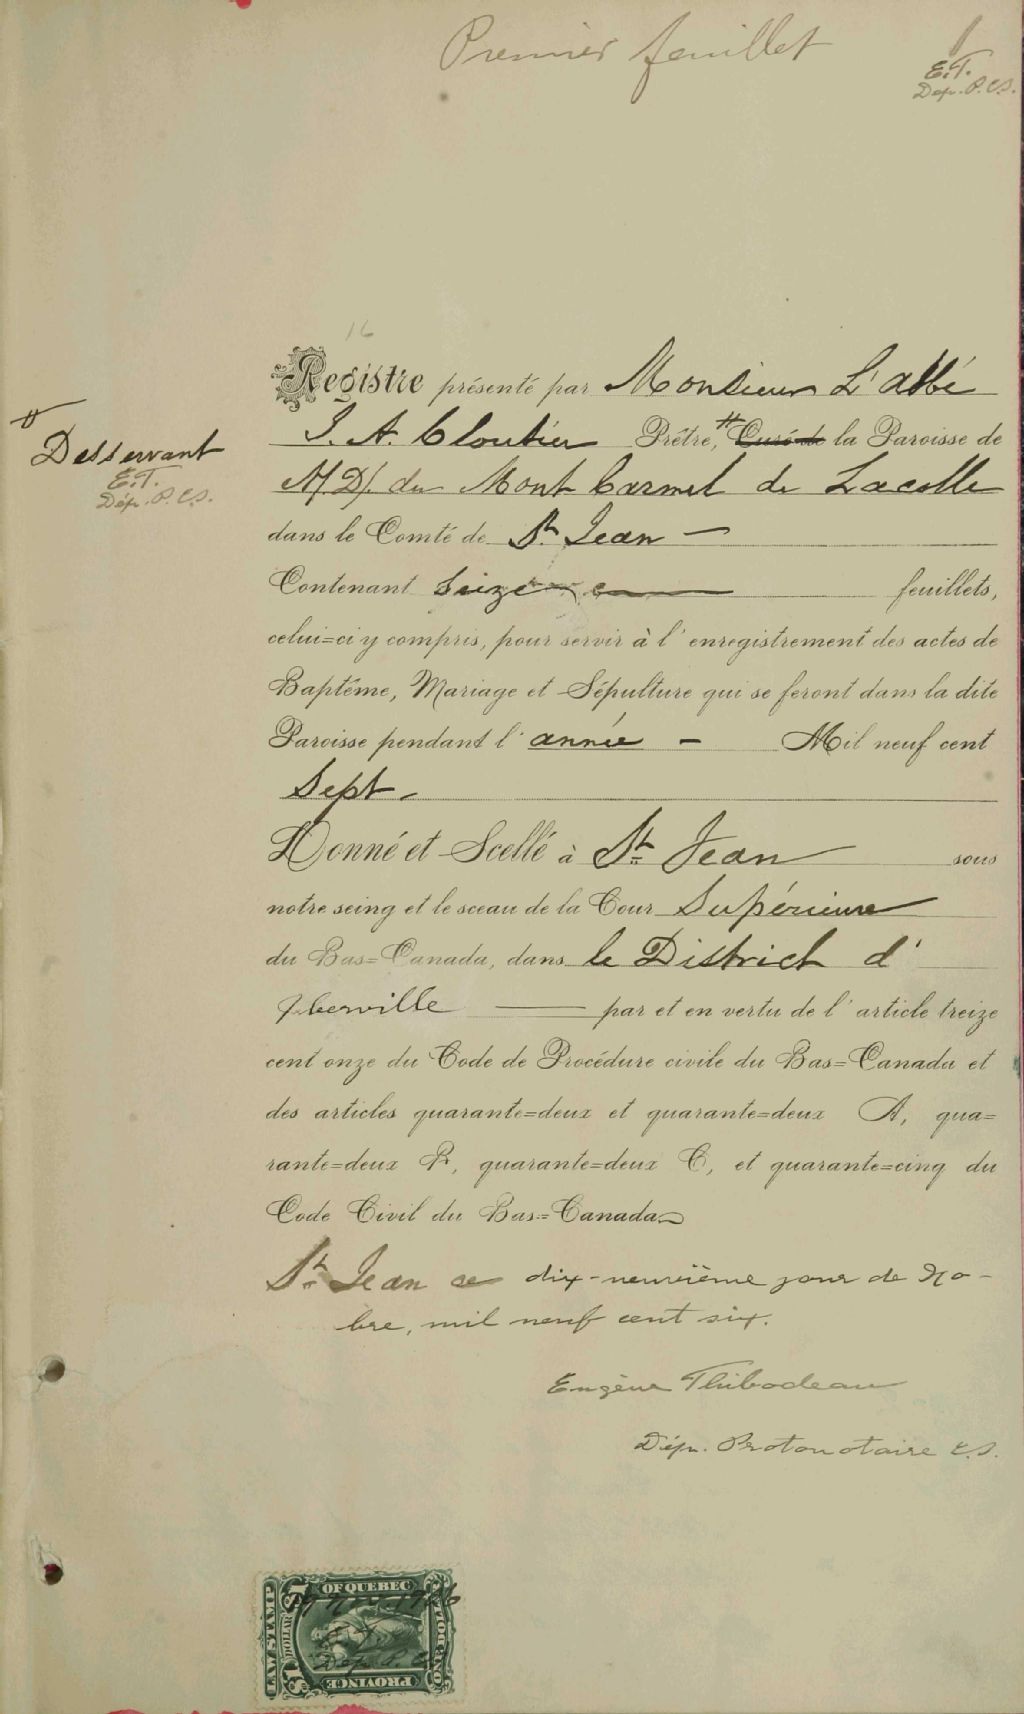 Premier feuillet
E.T.
Dép. P. C.S.
16
Registre présenté par Monsieur L'abbé
J. A. Cloutier Prêtre, # Curé de la Paroisse de
# Desservant
E.T.
Dép. P. C.S.
N.D. du Mont Carmel de Lacolle
dans le Comté de St Jean —
Contenant Seize feuillets,
celui=ci y compris, pour servir à l'enregistrement des actes de
Baptême, Mariage et Sépulture qui se feront dans la dite
Paroisse pendant l'année — Mil neuf cent
Sept —
Donné et Scellé à St Jean sous
notre seing et le sceau de la Cour Supérieure
du Bas=Canada, dans le District d'
Iberville — par et en vertu de l'article treize
cent onze du Code de Procédure civile du Bas=Canada et
des articles quarante=deux et quarante=deux A, qua=
rante=deux B, quarante=deux C, et quarante=cinq du
Code Civil du Bas=Canada
St Jean ce dix-neuvième jour de No-
bre, mil neuf cent six.
Eugène Thibodeau
Dép. Protonotaire C.S.
OF QUEBEC
LAW STAMP
$1
DOLLAR
ONE DOLLAR
PROVINCE
Dép. P. C.S.